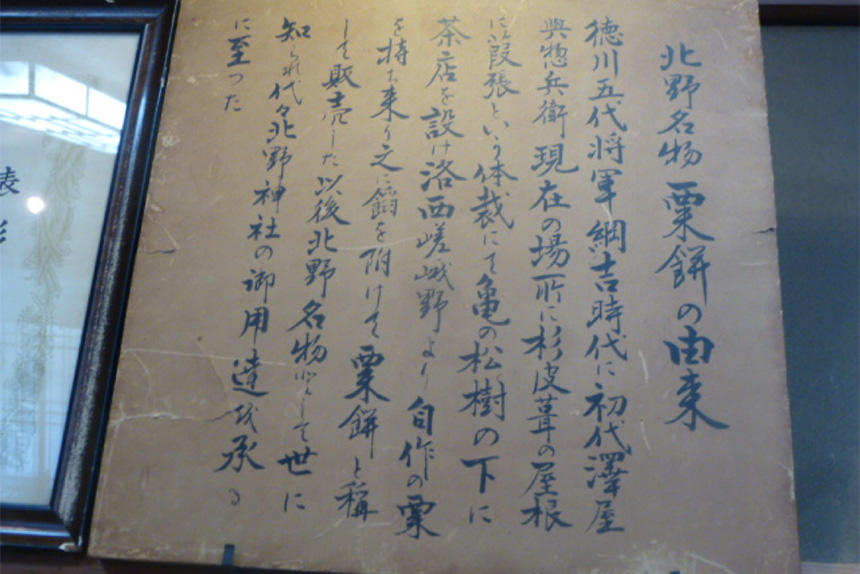 北野名物 粟餅の由来
徳川五代将軍綱吉時代に初代澤屋
與惣兵衛現在の場所に杉皮葺の屋根
に葭張という体裁にて亀の松樹の下に
茶店を設け洛西嵯峨野より自作の粟
を持ち来り之に餡を附けて粟餅と称
して販売した以後北野名物として世に
知られ代々北野神社の御用達を承る
に至った
表